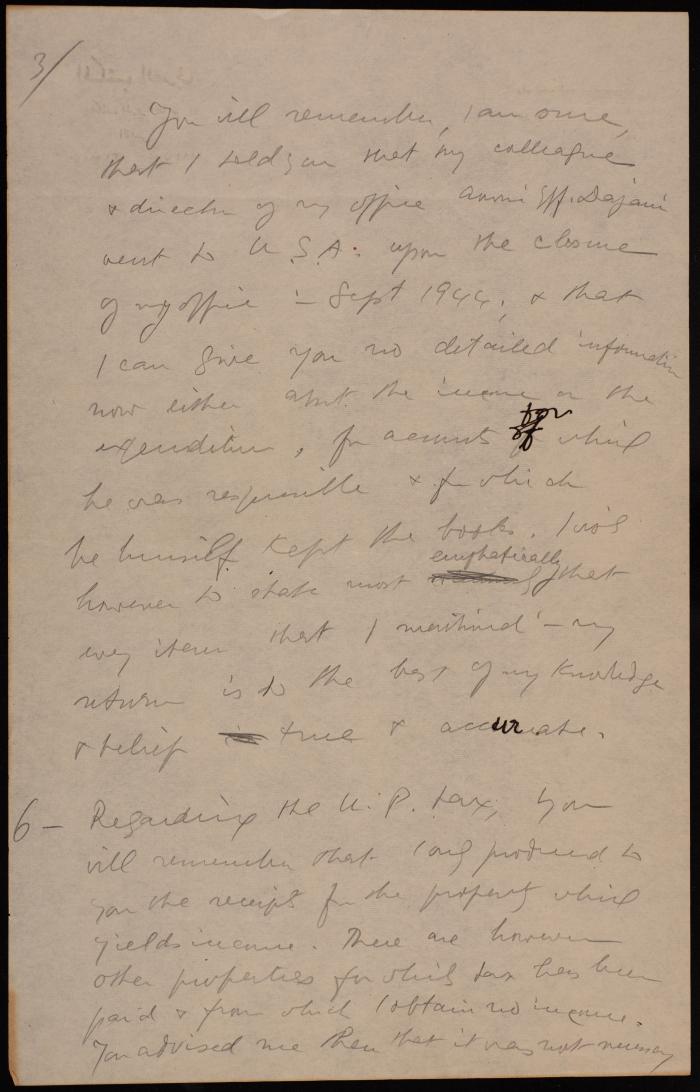 3/
You will remember, I am sure,
that I told you that my colleague
& director of my office Awni Eff. Dajani
went to U.S.A. upon the closure
of my office in Sept 1944, & that
I can give you no detailed information
now either about the income or the
expenditure, for accounts for which
he was responsible & for which
he himself kept the books. I wish
however to state most emphatically that
every item that I mentioned in my
return is to the best of my knowledge
& belief true & accurate.
6 - Regarding the U.P. tax, you
will remember that I only produced to
you the receipts for the property which
yields income. There are however
other properties for which tax has been
paid & from which I obtain no income.
You advised me then that it was not necessary